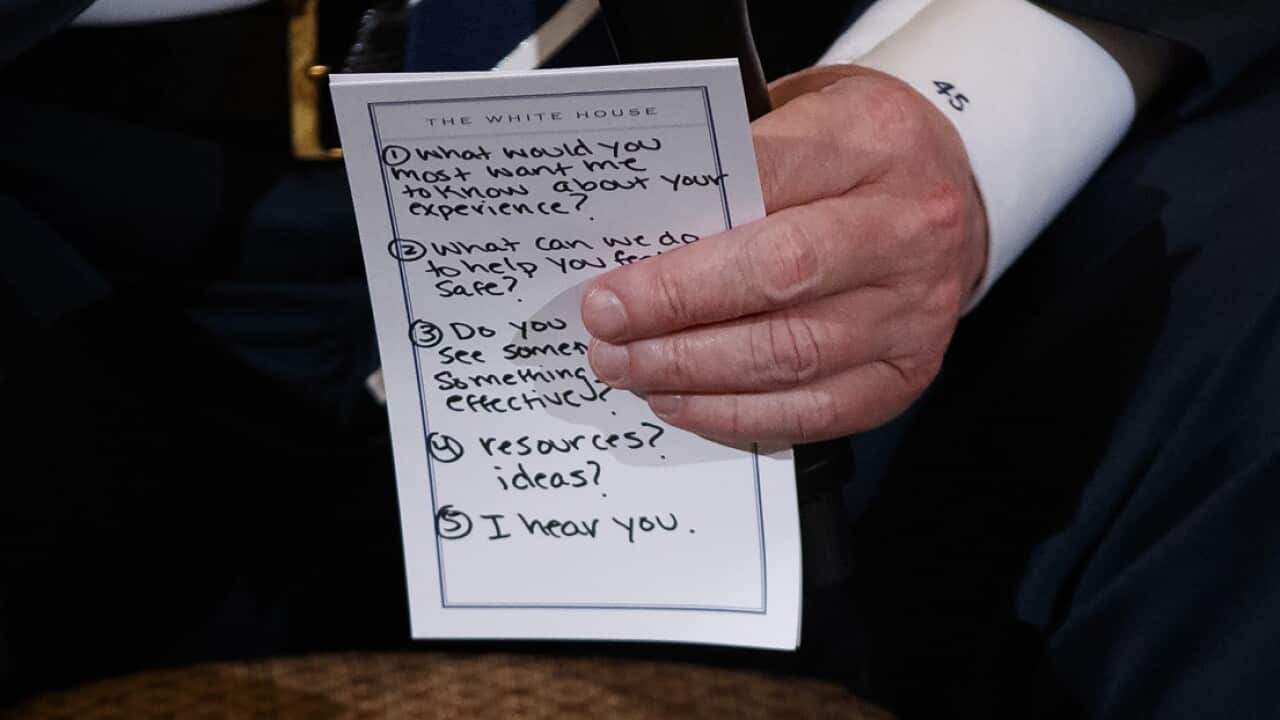 THE WHITE HOUSE
45
① What would you
most want me
to know about your
experience?
② What can we do
to help you
safe?
③ Do you
see
something
effective?
④ resources?
ideas?
⑤ I hear you.